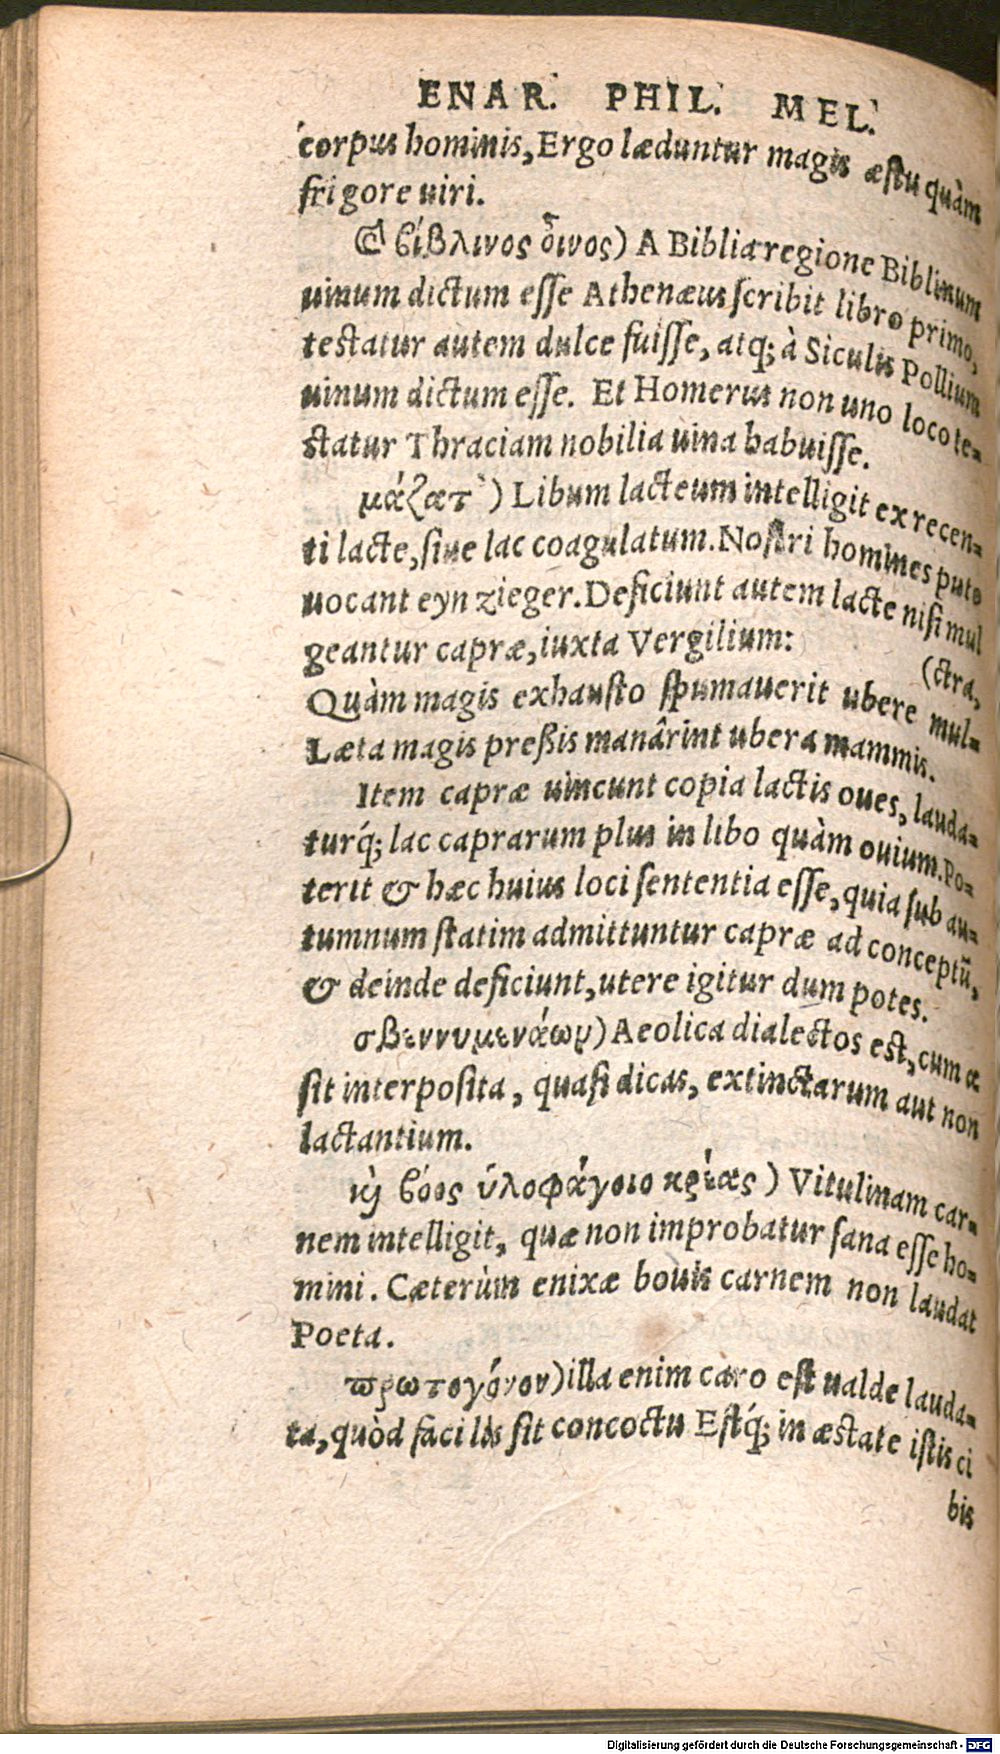 ENAR. PHIL. MEL.
corpus hominis, Ergo læduntur magis æstu quàm
frigore uiri.
καὶ βίβλινος οἶνος) A Bibliaregione Biblinum
uinum dictum esse Athenæus scribit libro primo,
testatur autem dulce fuisse, atq; à Siculis Pollium
uinum dictum esse. Et Homerus non uno loco te-
statur Thraciam nobilia uina habuisse.
μάζατ᾽) Libum lacteum intelligit ex recen-
ti lacte, siue lac coagulatum. Nostri homines puto
uocant eyn zieger. Deficiunt autem lacte nisi mul
geantur capræ, iuxta Vergilium:
(ctra,
Quàm magis exhausto spumauerit ubere mul-
Læta magis preßis manârint ubera mammis.
Item capræ uincunt copia lactis oues, lauda-
turq́; lac caprarum plus in libo quàm ouium. Po-
terit & hæc huius loci sententia esse, quia sub au-
tumnum statim admittuntur capræ ad conceptũ,
& deinde deficiunt, utere igitur dum potes.
σβεννυμενάων) Aeolica dialectos est, cum æ
sit interposita, quasi dicas, extinctarum aut non
lactantium.
καὶ βόος ὑλοφάγοιο κρέας) Vitulinam car-
nem intelligit, quæ non improbatur sana esse ho-
mini. Cæterùm enixæ bouis carnem non laudat
Poeta.
πρωτογόνον) illa enim caro est ualde lauda-
ta, quòd facilis sit concoctu Estq́; in æstate istis ci
bis
Digitalisierung gefördert durch die Deutsche Forschungsgemeinschaft - DFG